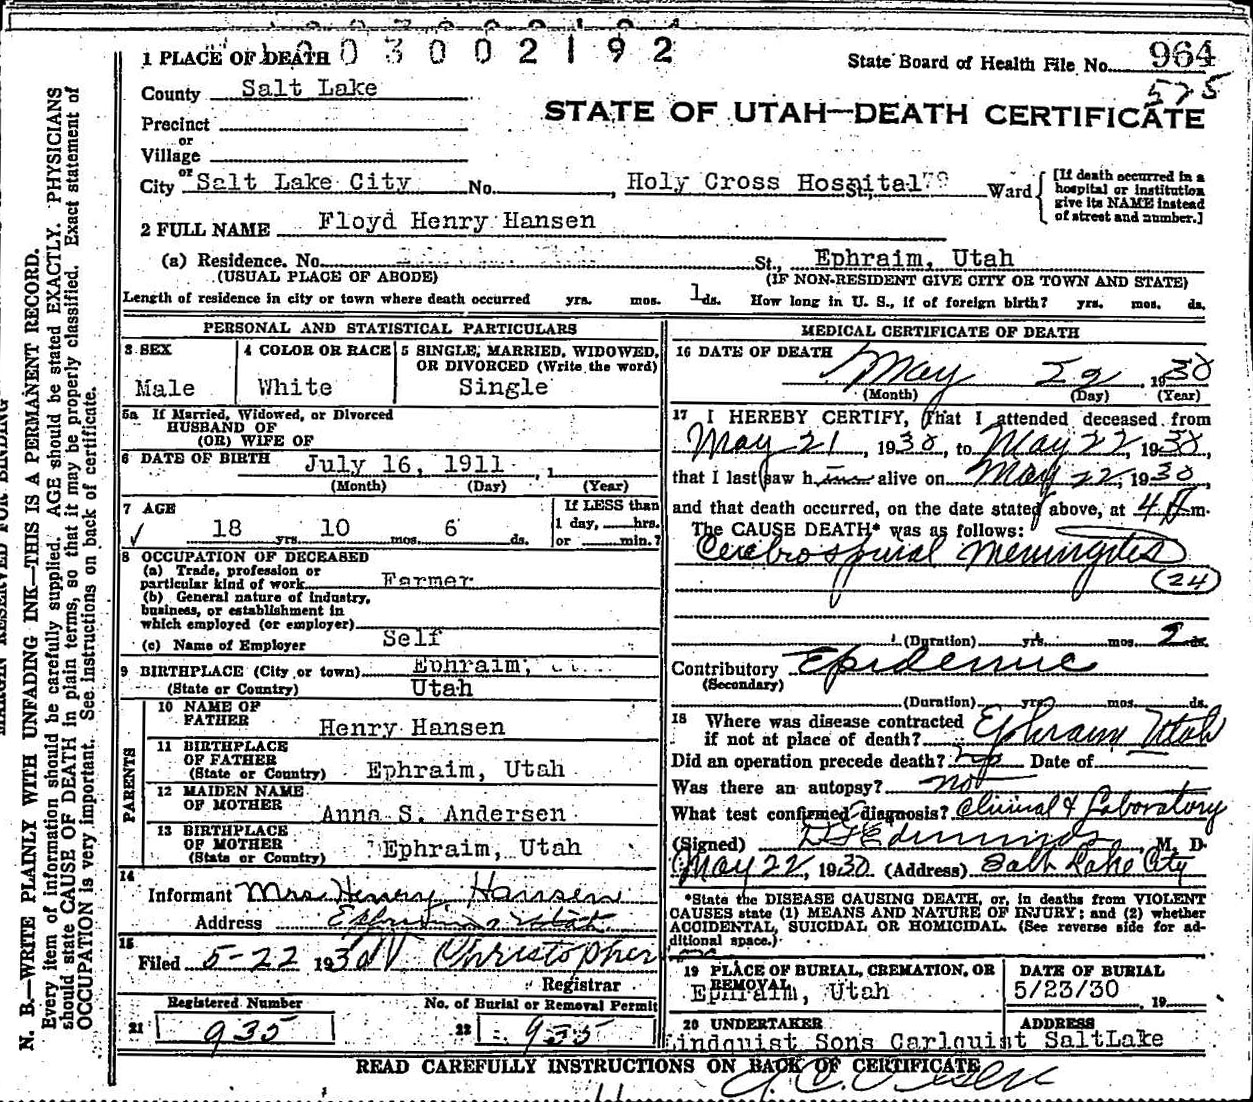 1 PLACE OF DEATH 003002192
State Board of Health File No. 964
575
County Salt Lake
STATE OF UTAH—DEATH CERTIFICATE
Precinct
or
Village
or
City Salt Lake City No. , Holy Cross Hospital St., Ward
[If death occurred in a
hospital or institution
give its NAME instead
of street and number.]
2 FULL NAME Floyd Henry Hansen
(a) Residence. No. St., Ephraim, Utah
(USUAL PLACE OF ABODE) (IF NON-RESIDENT GIVE CITY OR TOWN AND STATE)
Length of residence in city or town where death occurred yrs. mos. 1 ds. How long in U. S., if of foreign birth? yrs. mos. ds.
PERSONAL AND STATISTICAL PARTICULARS
3 SEX
Male
4 COLOR OR RACE
White
5 SINGLE, MARRIED, WIDOWED,
OR DIVORCED (Write the word)
Single
5a If Married, Widowed, or Divorced
HUSBAND OF
(OR) WIFE OF
6 DATE OF BIRTH July 16, 1911 , 1
(Month) (Day) (Year)
7 AGE
18 yrs. 10 mos. 6 ds.
If LESS than
1 day, hrs.
or min.?
8 OCCUPATION OF DECEASED
(a) Trade, profession or
particular kind of work Farmer
(b) General nature of industry,
business, or establishment in
which employed (or employer)
(c) Name of Employer Self
9 BIRTHPLACE (City or town) Ephraim,
(State or Country) Utah
PARENTS
10 NAME OF
FATHER Henry Hansen
11 BIRTHPLACE
OF FATHER
(State or Country) Ephraim, Utah
12 MAIDEN NAME
OF MOTHER Anna S. Andersen
13 BIRTHPLACE
OF MOTHER
(State or Country) Ephraim, Utah
14
Informant Mrs Henry Hansen
Address Ephraim Utah
15
Filed 5-22 1930 Christopherson
Registrar
Registered Number
21 935
No. of Burial or Removal Permit
22 935
MEDICAL CERTIFICATE OF DEATH
16 DATE OF DEATH
May 22, 1930
(Month) (Day) (Year)
17 I HEREBY CERTIFY, That I attended deceased from
May 21, 1930, to May 22, 1930,
that I last saw him alive on May 22, 1930,
and that death occurred, on the date stated above, at 4 A m.
The CAUSE DEATH* was as follows:
Cerebrospinal Meningites
24
(Duration) yrs. mos. 2 ds.
Contributory Epidemic
(Secondary)
(Duration) yrs. mos. ds.
18 Where was disease contracted
if not at place of death? Ephraim Utah
Did an operation precede death? no Date of
Was there an autopsy? not
What test confirmed diagnosis? Clinical & Laboratory
(Signed) Edmunds, M. D.
May 22, 1930 (Address) Salt Lake City
*State the DISEASE CAUSING DEATH, or, in deaths from VIOLENT
CAUSES state (1) MEANS AND NATURE OF INJURY; and (2) whether
ACCIDENTAL, SUICIDAL OR HOMICIDAL. (See reverse side for ad-
ditional space.)
19 PLACE OF BURIAL, CREMATION, OR
REMOVAL
Ephraim, Utah
DATE OF BURIAL
5/23/30 , 19
20 UNDERTAKER
Lindquist Sons Carlquist
ADDRESS
SaltLake
READ CAREFULLY INSTRUCTIONS ON BACK OF CERTIFICATE
MARGIN RESERVED FOR BINDING
N. B.—WRITE PLAINLY WITH UNFADING INK—THIS IS A PERMANENT RECORD.
Every item of information should be carefully supplied. AGE should be stated EXACTLY. PHYSICIANS
should state CAUSE OF DEATH in plain terms, so that it may be properly classified. Exact statement of
OCCUPATION is very important. See instructions on back of certificate.